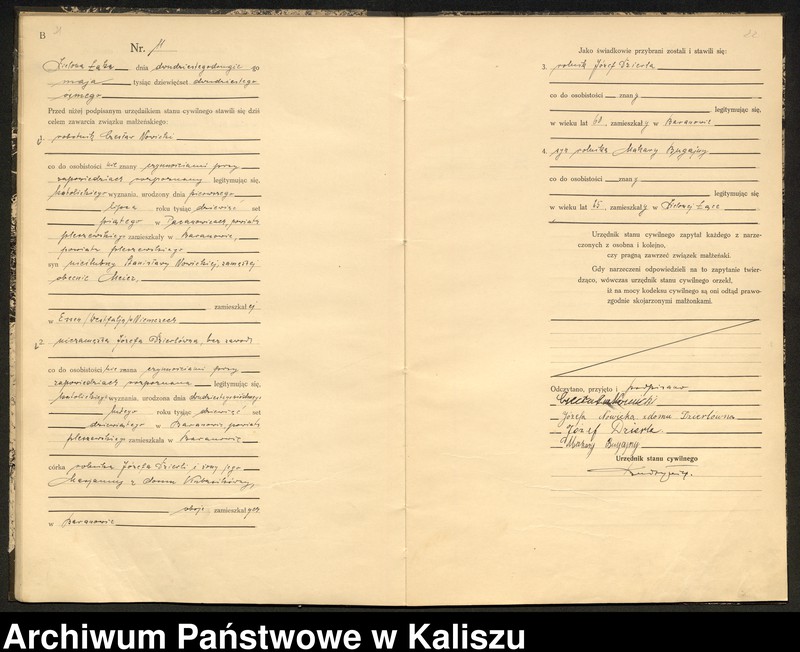 B
Nr. 11
Zielona Łąka dnia dwudziestegodrugiego
maja tysiąc dziewięćset dwudziestego
ósmego
Przed niżej podpisanym urzędnikiem stanu cywilnego stawili się dziś
celem zawarcia związku małżeńskiego:
1. robotnik Czesław Nowicki
co do osobistości nie znany czynnościami przy
zapowiedziach rozpoznany legitymując się,
katolickiego wyznania, urodzony dnia pierwszego
lipca roku tysiąc dziewięć set
piątego w powiatu
pleszewskiego zamieszkały w Baranowie,
powiatu pleszewskiego
syn nieślubny Stanisławy Nowickiej, zamężnej
obecnie
zamieszkałej
w Essen (Westfalja) w Niemczech
2. niezamężna Józefa Dzierlówna, bez zawodu
co do osobistości nie znana czynnościami przy
zapowiedziach rozpoznana legitymując się,
katolickiego wyznania, urodzona dnia
lutego roku tysiąc dziewięć set
dziewiątego w Baranowie, powiatu
pleszewskiego zamieszkała w Baranowie
córka rolnika Józefa Dzierli i żony jego
Marjanny z domu
oboje zamieszkałych
w Baranowie
Jako świadkowie przybrani zostali i stawili się:
3. rolnik Józef Dzierla
co do osobistości znany
legitymując się,
w wieku lat zamieszkały w Baranowie
4. syn rolnika Makary Bugajny
co do osobistości znany
legitymując się
w wieku lat zamieszkały w Zielonej Łące
Urzędnik stanu cywilnego zapytał każdego z narze-
czonych z osobna i kolejno,
czy pragną zawrzeć związek małżeński.
Gdy narzeczeni odpowiedzieli na to zapytanie twier-
dząco, wówczas urzędnik stanu cywilnego orzekł,
iż na mocy kodeksu cywilnego są oni odtąd prawo-
zgodnie skojarzonymi małżonkami.
Odczytano, przyjęto i podpisano
Czesław Nowicki
Józefa Nowicka z domu Dzierlówna
Józef Dzierla
Makary Bugajny
Urzędnik stanu cywilnego
Archiwum Państwowe w Kaliszu